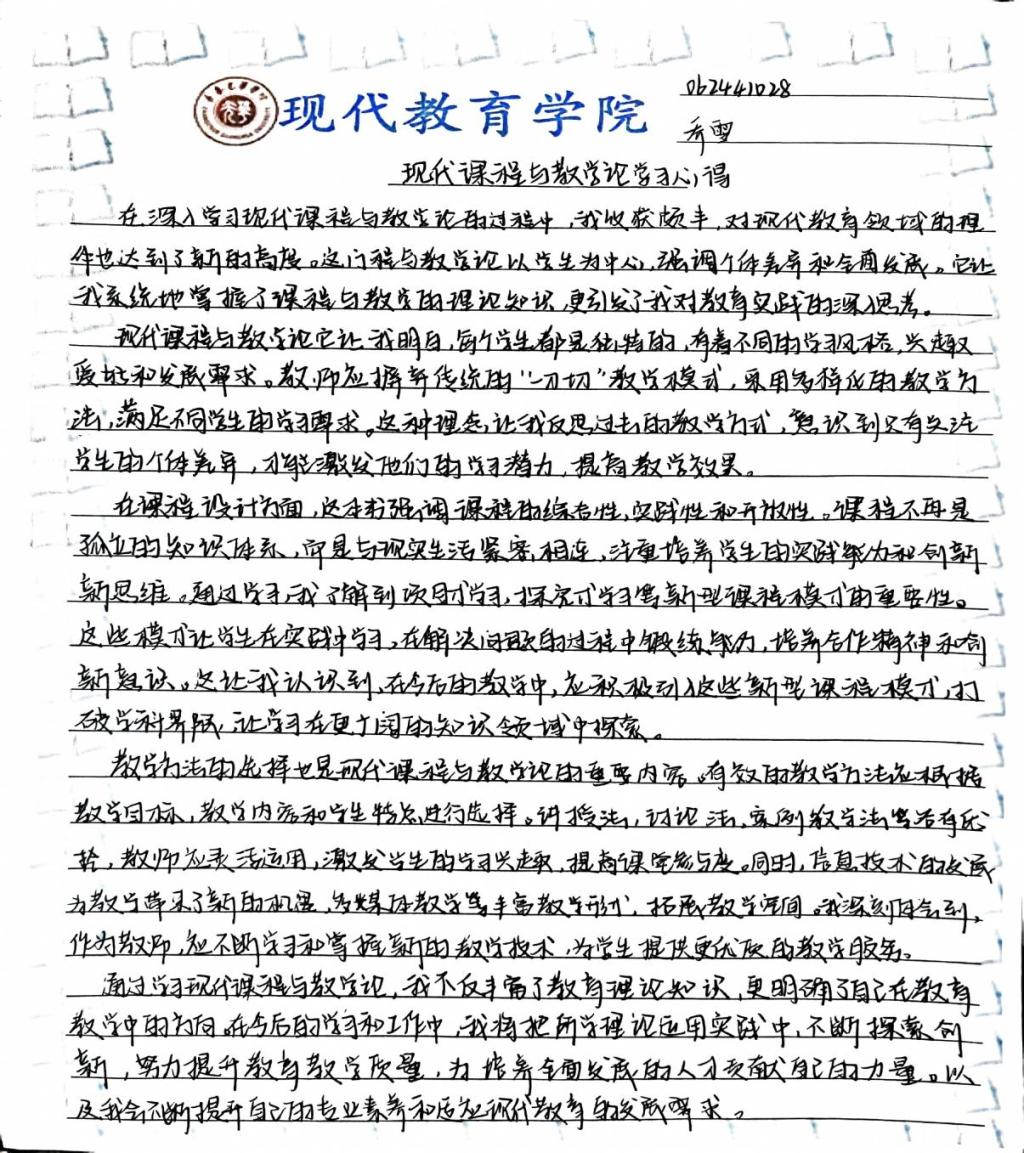 现代教育学院
062441028
乔雪
现代课程与教学论学习心得
在深入学习现代课程与教学论的过程中，我收获颇丰，对现代教育领域的理
作也达到了新的高度。这门程与教学论以学生为中心，强调个体差异和全面发展。它让
我系统地掌握了课程与教学的理论知识，更引发了我对教育实践的深入思考。
现代课程与教学论它让我明白，每个学生都是独特的，有着不同的学习风格，兴趣
爱好和发展需求。教师应摒弃传统的“一刀切”教学模式，采用多样化的教学方
法，满足不同学生的学习需求。这种理念让我反思过去的教学方式，意识到只有关注
学生的个体差异，才能激发他们的学习潜力，提高教学效果。
在课程设计方面，这本书强调课程的综合性，实践性和开放性。课程不再是
孤立的知识体系，而是与现实生活紧密相连，注重培养学生的实践能力和创新
新思维。通过学习，我了解到项目式学习，探究式学习等新型课程模式的重要性。
这些模式让学生在实践中学习，在解决问题的过程中锻练能力，培养合作精神和创
新意识。这让我认识到，在今后的教学中，应积极引入这些新型课程模式，打
破学科界限，让学习在更广阔的知识领域中探索。
教学方法的选择也是现代课程与教学论的重要内容。有效的教学方法应根据
教学目标，教学内容和学生特点进行选择。讲授法，讨论法，案例教学法等各有优
，教师应灵活运用，激发学生的学习兴趣，提高课堂参与度。同时，信息技术的发展
为教学带来了新的机遇，多媒体教学等丰富教学形式，拓展教学空间。我深刻体会到，
作为教师，应不断学习和掌握新的教学技术，为学生提供更优质的教学服务。
通过学习现代课程与教学论，我不仅丰富了教育理论知识，更明确了自己在教育
教学中的方向。在今后的学习和工作中，我将把所学理论运用实践中，不断探索创
新，努力提升教育教学质量，为培养全面发展的人才贡献自己的力量。以
及我会不断提升自己的专业素养和适应现代教育的发展需求。